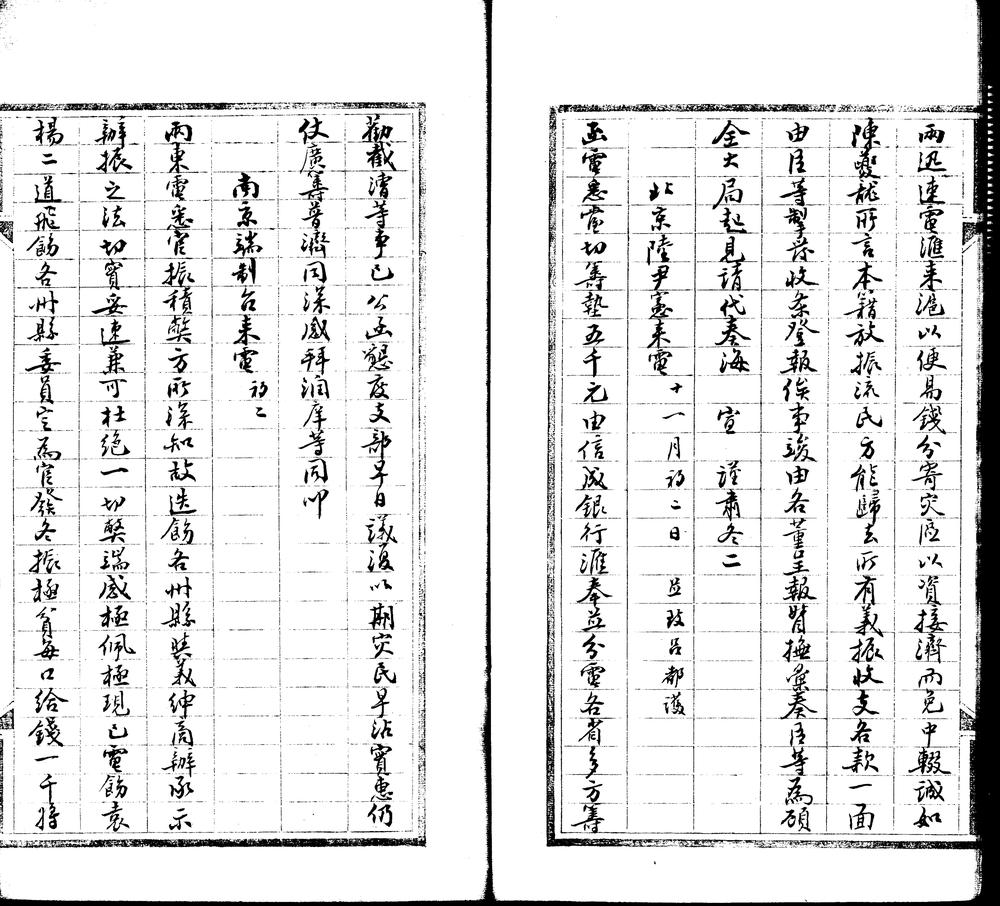 兩迅速電滙来滬以便易錢分寄灾區以資接濟而免中輟誠如
陳夔龍所言本籍放振流民方能歸去所有義振收支各款一面
由臣等掣發收条登報俟事竣由各董呈報督撫彙奏臣等為顧
全大局起見請代奏海 宣 謹肅冬二
北京陸尹憲来電 十一月初二日 並致吕都護
函電悉當切籌墊五千元由信成銀行滙奉並分電各省多方籌
勸截漕等事已公函懇度支部早日議復以期灾民早沾實惠仍
仗廣籌普濟同深感拜潤庠等同叩
南京端制台来電 初二
兩東電悉官振積獘方所深知故迭飭各州縣與義紳商辦承示
辦振之法切實妥速兼可杜絶一切獘端感極佩極現已電飭袁
楊二道飛飭各州縣委員定為官發冬振極貧每口給錢一千將